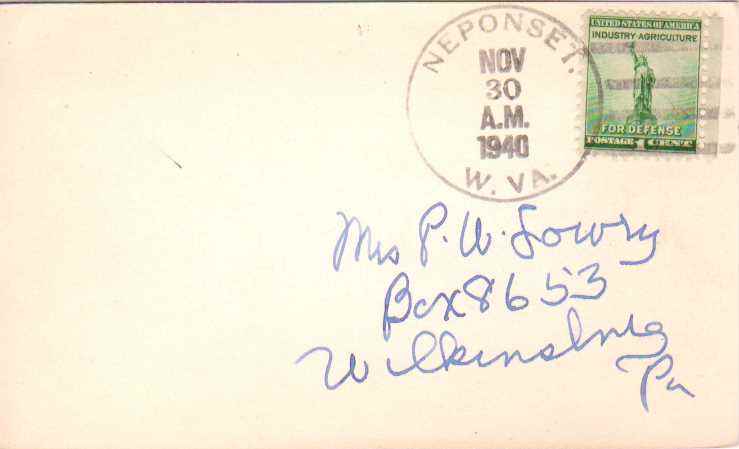 NEPONSET.
NOV
30
A.M.
1940
W. VA.
UNITED STATES OF AMERICA
INDUSTRY AGRICULTURE
FOR DEFENSE
POSTAGE 1 CENT
Mrs P. W. Lowry
Box 8653
Wilkinsburg
Pa